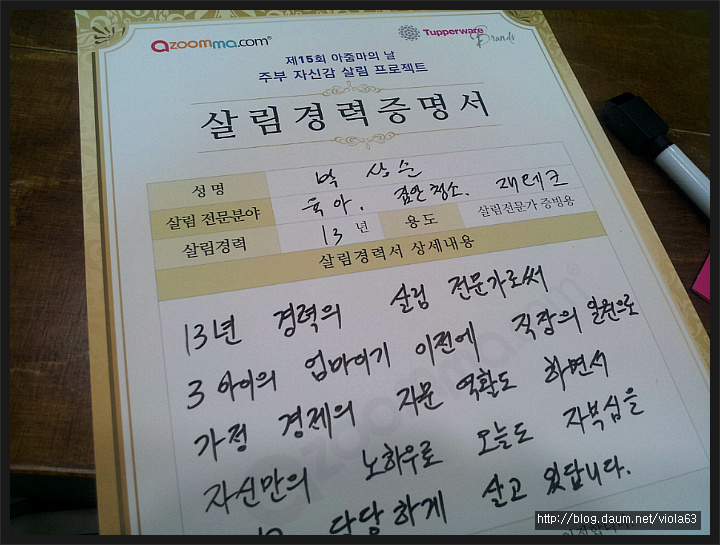 azoomma.com®
Tupperware Brands
제15회 아줌마의 날
주부 자신감 살림 프로젝트
살림경력증명서
성명 박상순
살림 전문분야 육아. 집안청소. 재테크
살림경력 13년 용도 살림전문가 증빙용
살림경력서 상세내용
13년 경력의 살림 전문가로써
3아이의 엄마이기 이전에 직장의 일원으로
가정 경제의 자문 역활도 하면서
자신만의 노하우로 오늘도 자부심을
당당하게 살고 있답니다.
http://blog.daum.net/viola63